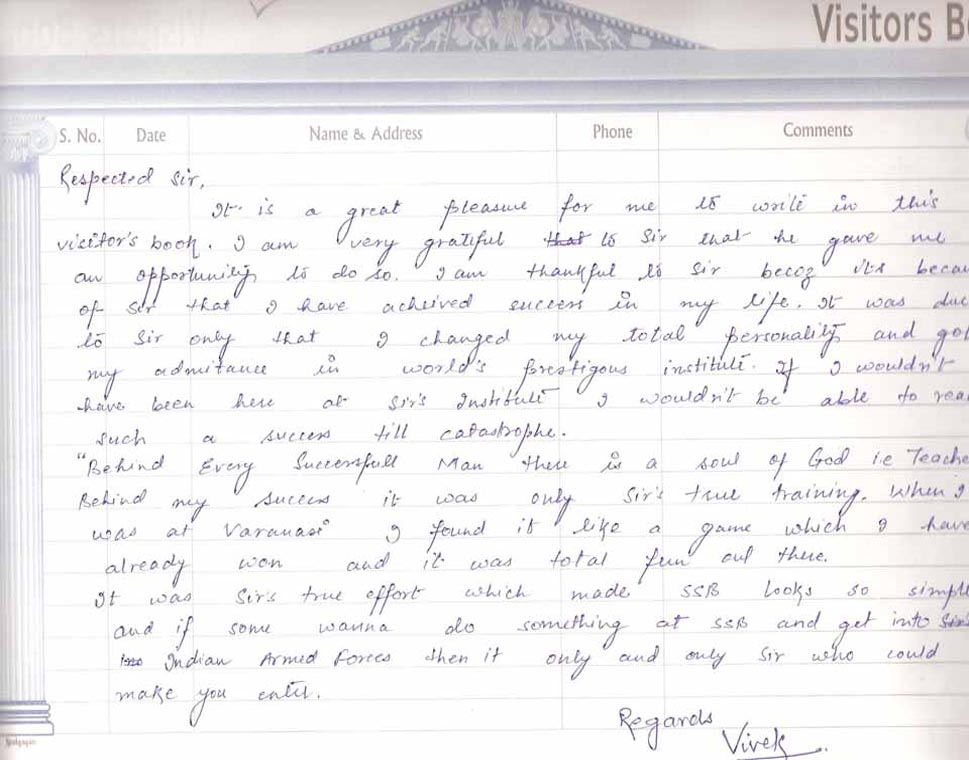 Visitors B
S. No. Date Name & Address Phone Comments
Respected Sir,
It is a great pleasure for me to write in this
visitor's book. I am very gratiful that to Sir that he gave me
an opportunity to do so. I am thankful to Sir becoz its becau
of Sir that I have acheived success in my life. It was due
to Sir only that I changed my total personality and got
my admitance in world's prestigous institute. If I wouldn't
have been here at Sir's Institute I wouldn't be able to rea
such a success till catastrophe.
"Behind Every Successfull Man there is a soul of God i.e Teache
Behind my success it was only Sir's true training. When I
was at Varanasi I found it like a game which I have
already won and it was total fun out there.
It was Sir's true effort which made SSB looks so simple
and if some wanna do something at SSB and get into Sir's
into Indian Armed Forces then it only and only Sir who could
make you enter.
Regards
Vivek